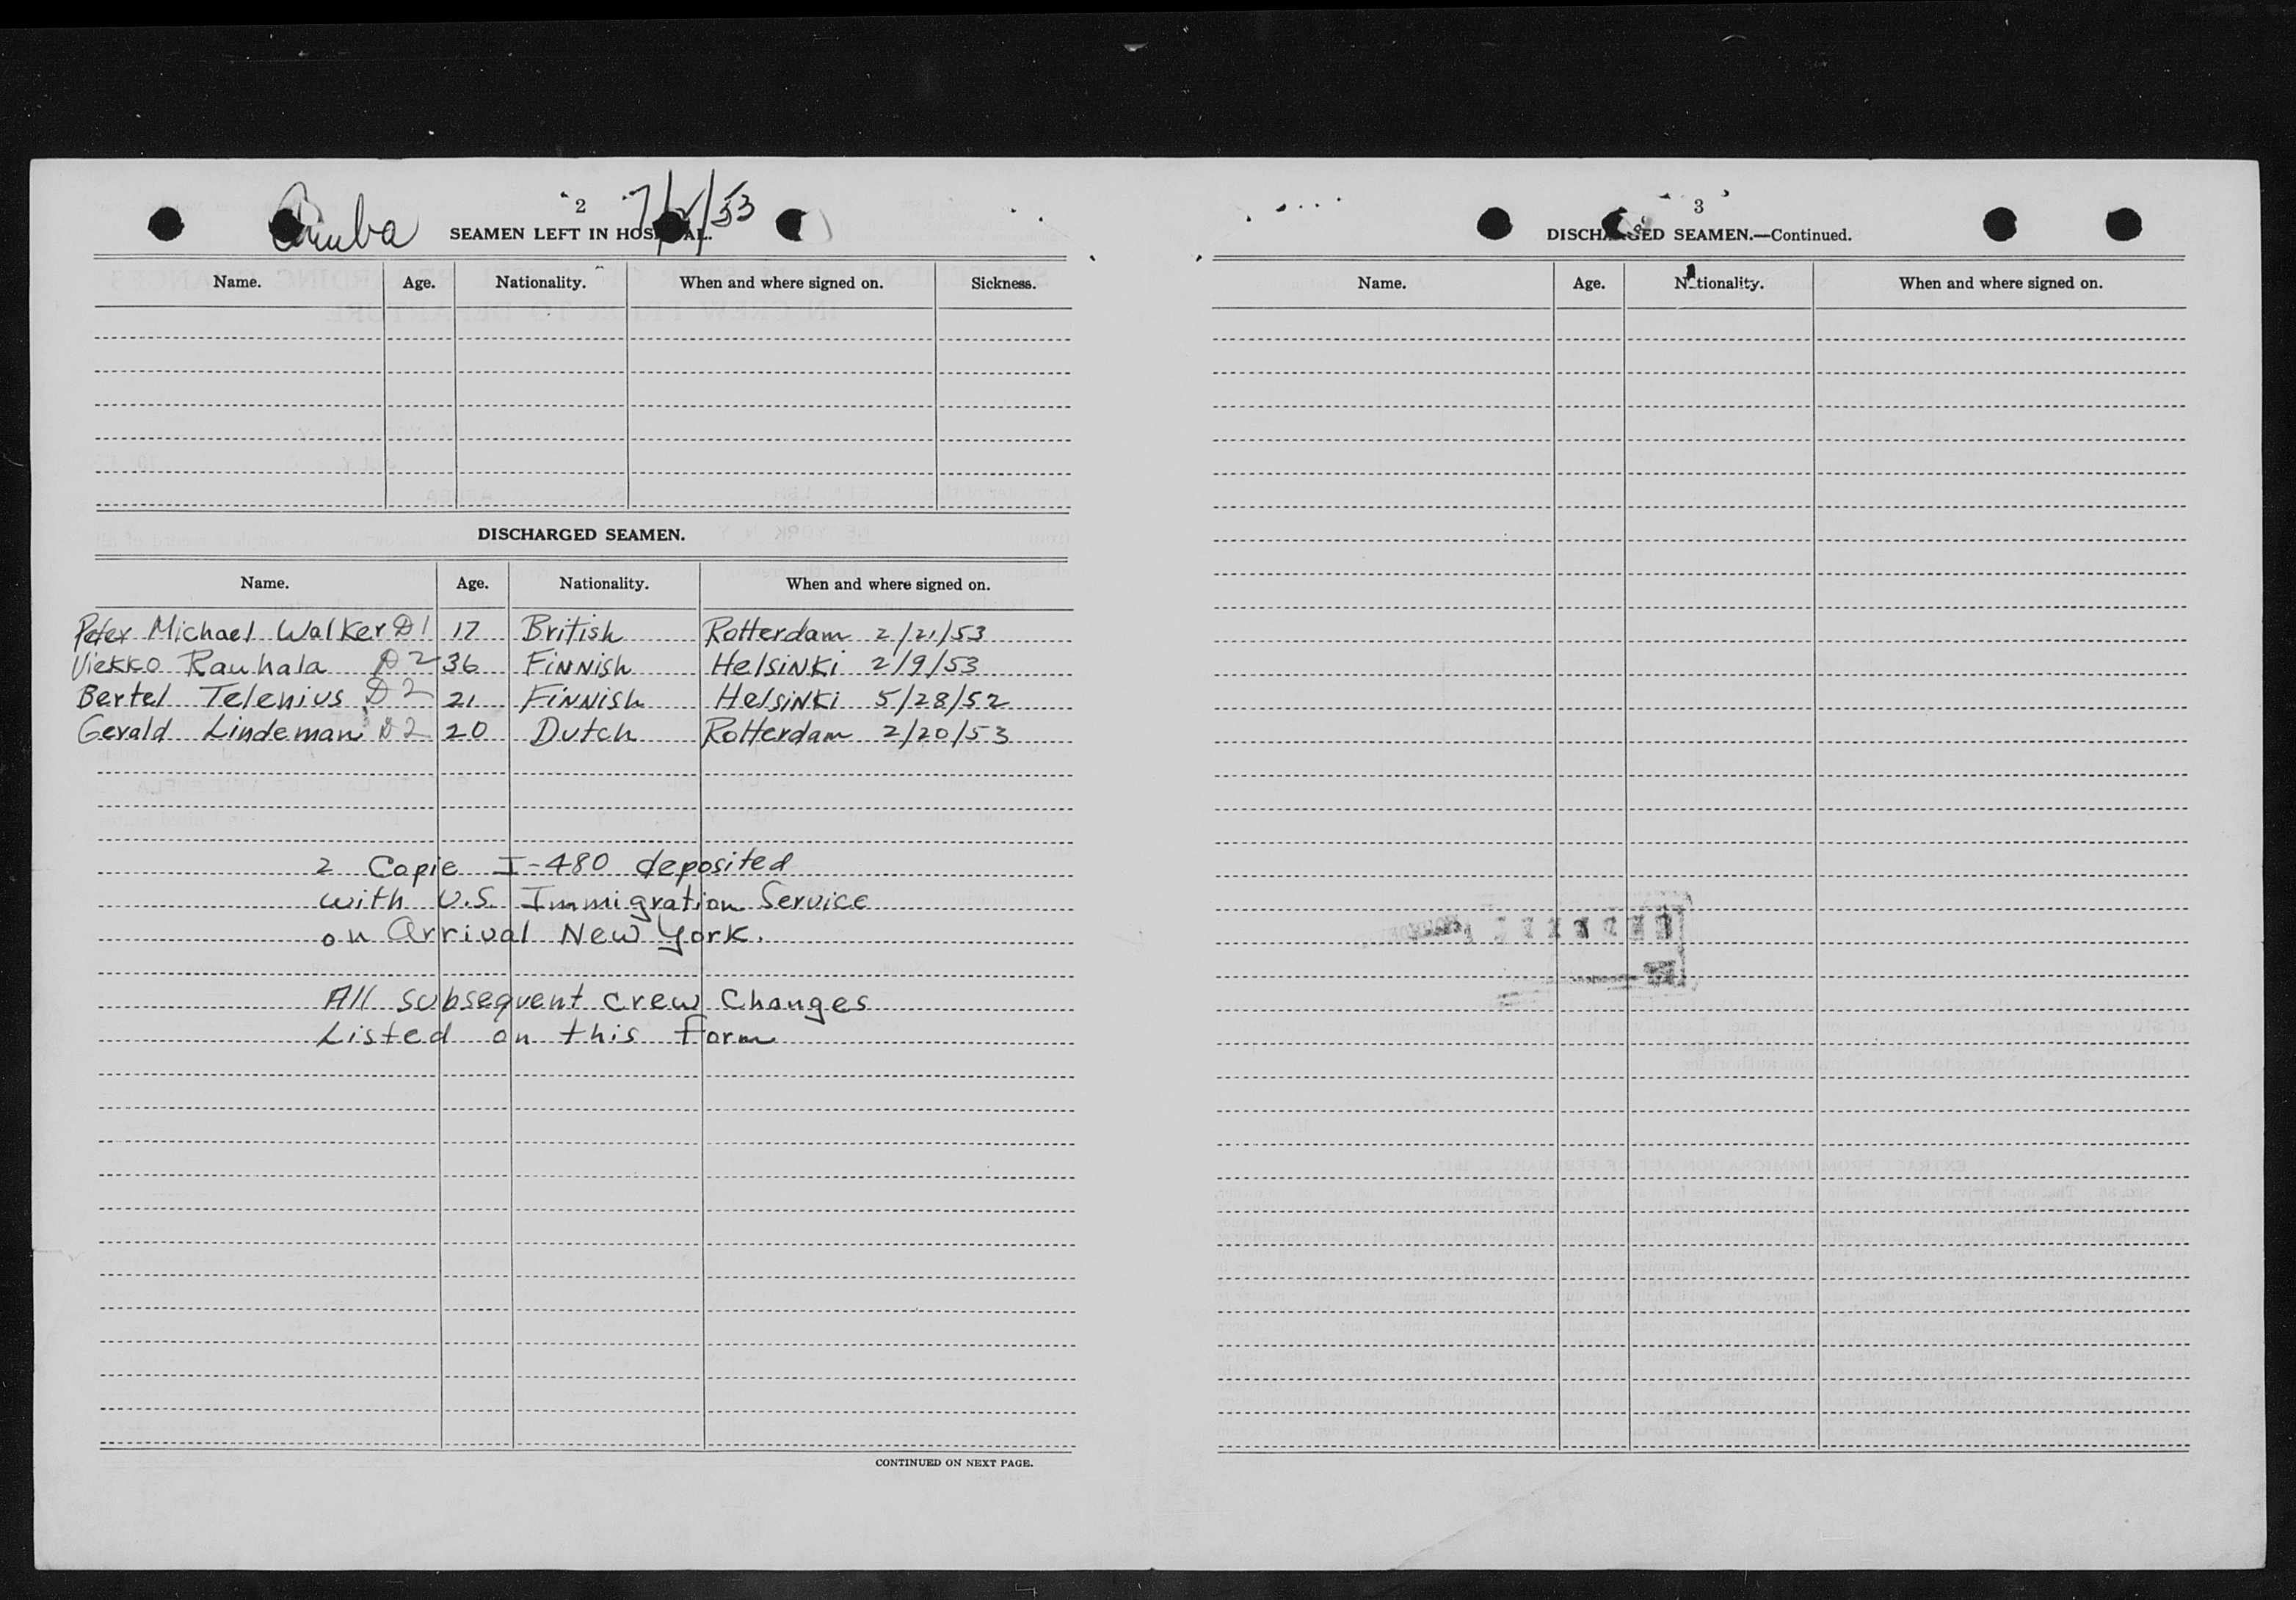 2
Aruba 7/2/53
SEAMEN LEFT IN HOSPITAL.
Name. Age. Nationality. When and where signed on. Sickness.
DISCHARGED SEAMEN.
Name. Age. Nationality. When and where signed on.
Peter Michael Walker D1 17 British Rotterdam 2/21/53
Viekko Rauhala D2 36 Finnish Helsinki 2/9/53
Bertel Telenius D2 21 Finnish Helsinki 5/28/52
Gerald Lindeman D2 20 Dutch Rotterdam 2/20/53
2 Copie I-480 deposited
with U.S. Immigration Service
on Arrival New York.
All subsequent crew Changes
Listed on this form
CONTINUED ON NEXT PAGE.
3
DISCHARGED SEAMEN.—Continued.
Name. Age. Nationality. When and where signed on.